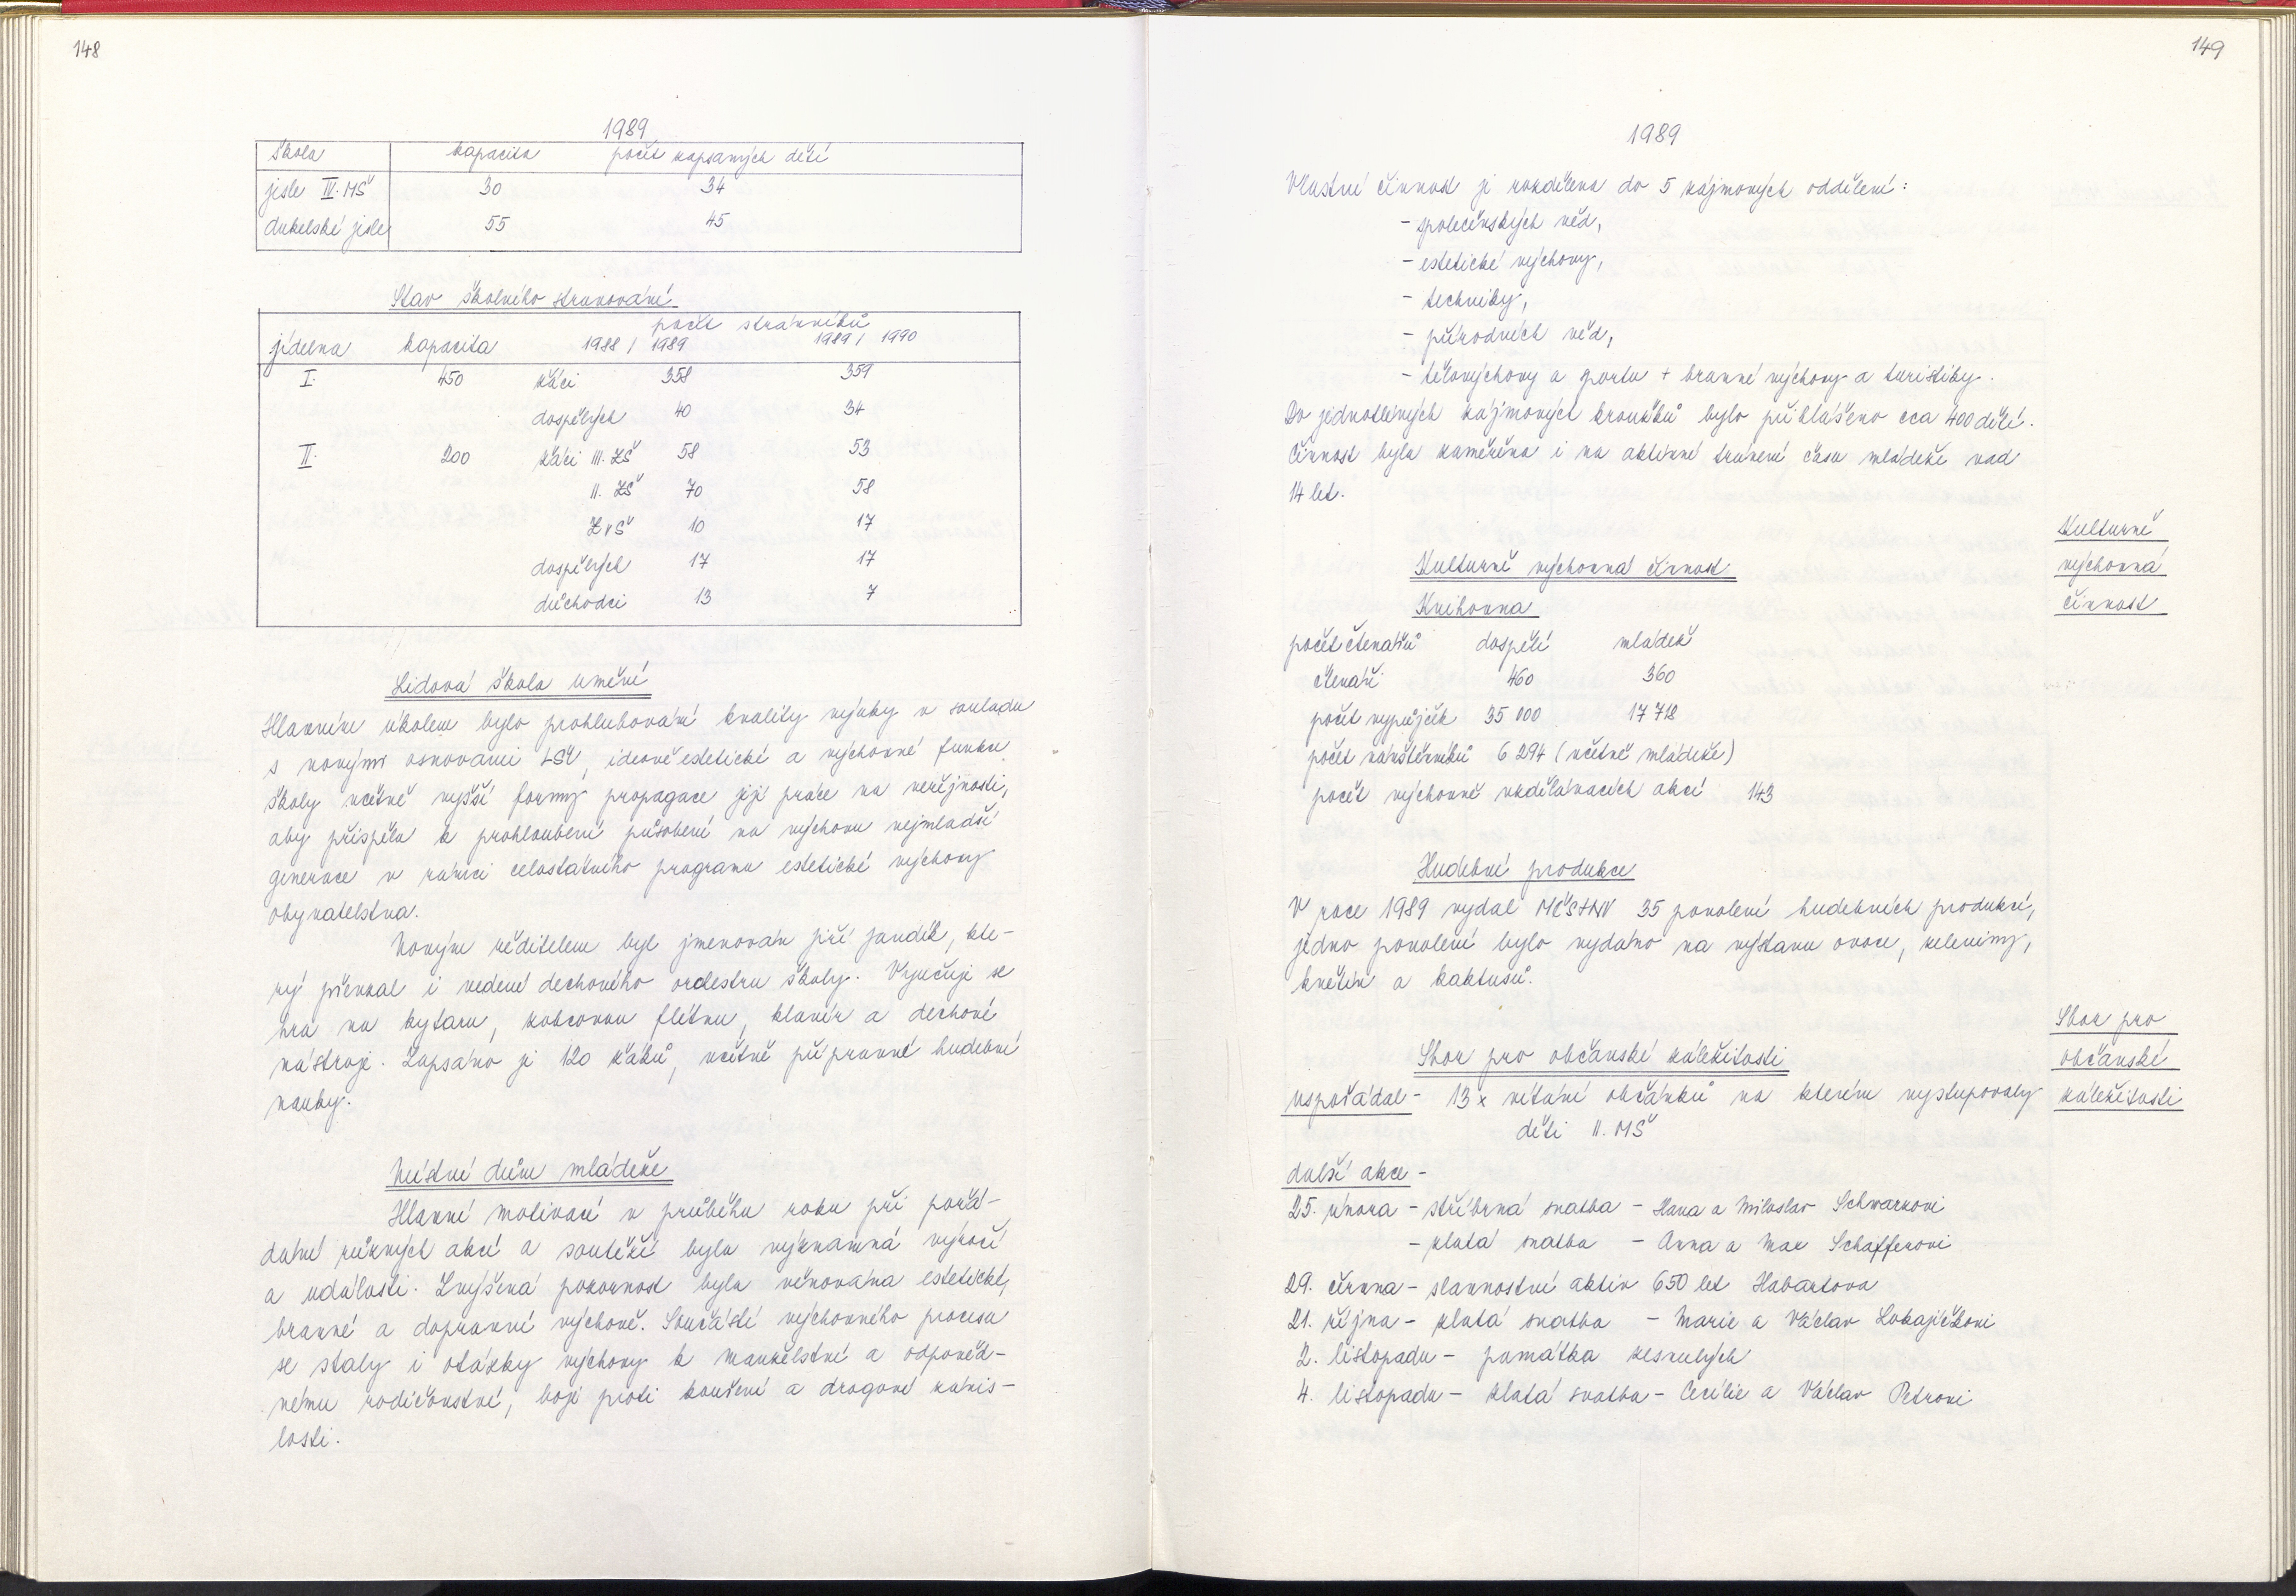 148
1989
škola kapacita počet zapsaných dětí
jesle IV. MŠ 30 34
dukelské jesle 55 45
Stav školního stravování
počet strávníků
jídelna kapacita 1988 / 1989 1989 / 1990
I. 450 žáci 358 359
dospělých 40 34
II. 200 žáci III. ZŠ 58 53
II. ZŠ 70 58
ZvŠ 10 17
dospělých 17 17
důchodci 13 7
Lidová škola umění
Hlavním úkolem bylo prohlubování kvality výuky v souladu
s novými osnovami LŠU, ideově estetické a výchovné funkce
školy včetně vyšší formy propagace její práce na veřejnosti,
aby přispěla k prohloubení působení na výchovu nejmladší
generace v rámci celostátního programu estetické výchovy
obyvatelstva.
Novým ředitelem byl jmenován Jiří Jandík, kte-
rý převzal i vedení dechového orchestru školy. Vyučuje se
hra na kytaru, zobcovou flétnu, klavír a dechové
nástroje. Zapsáno je 120 žáků, včetně přípravné hudební
nauky.
Místní dům mládeže
Hlavní motivací v průběhu roku při pořá-
dání různých akcí a soutěží byla významná výročí
a události. Zvýšená pozornost byla věnována estetické,
branné a dopravní výchově. Součástí výchovného procesu
se staly i otázky výchovy k manželství a odpověd-
nému rodičovství, boji proti kouření a drogové závis-
losti.
149
1989
Vlastní činnost je rozdělena do 5 zájmových oddělení:
- společenských věd,
- estetické výchovy,
- techniky,
- přírodních věd,
- tělovýchovy a sportu + branné výchovy a turistiky.
Do jednotlivých zájmových kroužků bylo přihlášeno cca 400 dětí.
Činnost byla zaměřena i na aktivní trávení času mládeže nad
14 let.
Kulturně
výchovná
činnost
Kulturně výchovná činnost
Knihovna
počet čtenářů dospělí mládež
čtenáři 460 360
počet vypůjček 35 000 17 718
počet návštěvníků 6 294 (včetně mládeže)
počet výchovně vzdělávacích akcí 143
Hudební produkce
V roce 1989 vydal MěstNV 35 povolení hudebních produkcí,
jedno povolení bylo vydáno na výstavu ovoce, zeleniny,
květin a kaktusů.
Sbor pro
občanské
záležitosti
Sbor pro občanské záležitosti
uspořádal - 13 x vítání občánků na kterém vystupovaly
děti II. MŠ
další akce -
25. února - stříbrná svatba - Hana a Miloslav Schwarzovi
- zlatá svatba - Anna a Max Schafferovi
29. června - slavnostní aktiv 650 let Habartova
21. října - zlatá svatba - Marie a Václav Lokajíčkovi
2. listopadu - památka zesnulých
4. listopadu - zlatá svatba - Cecílie a Václav Petrovi